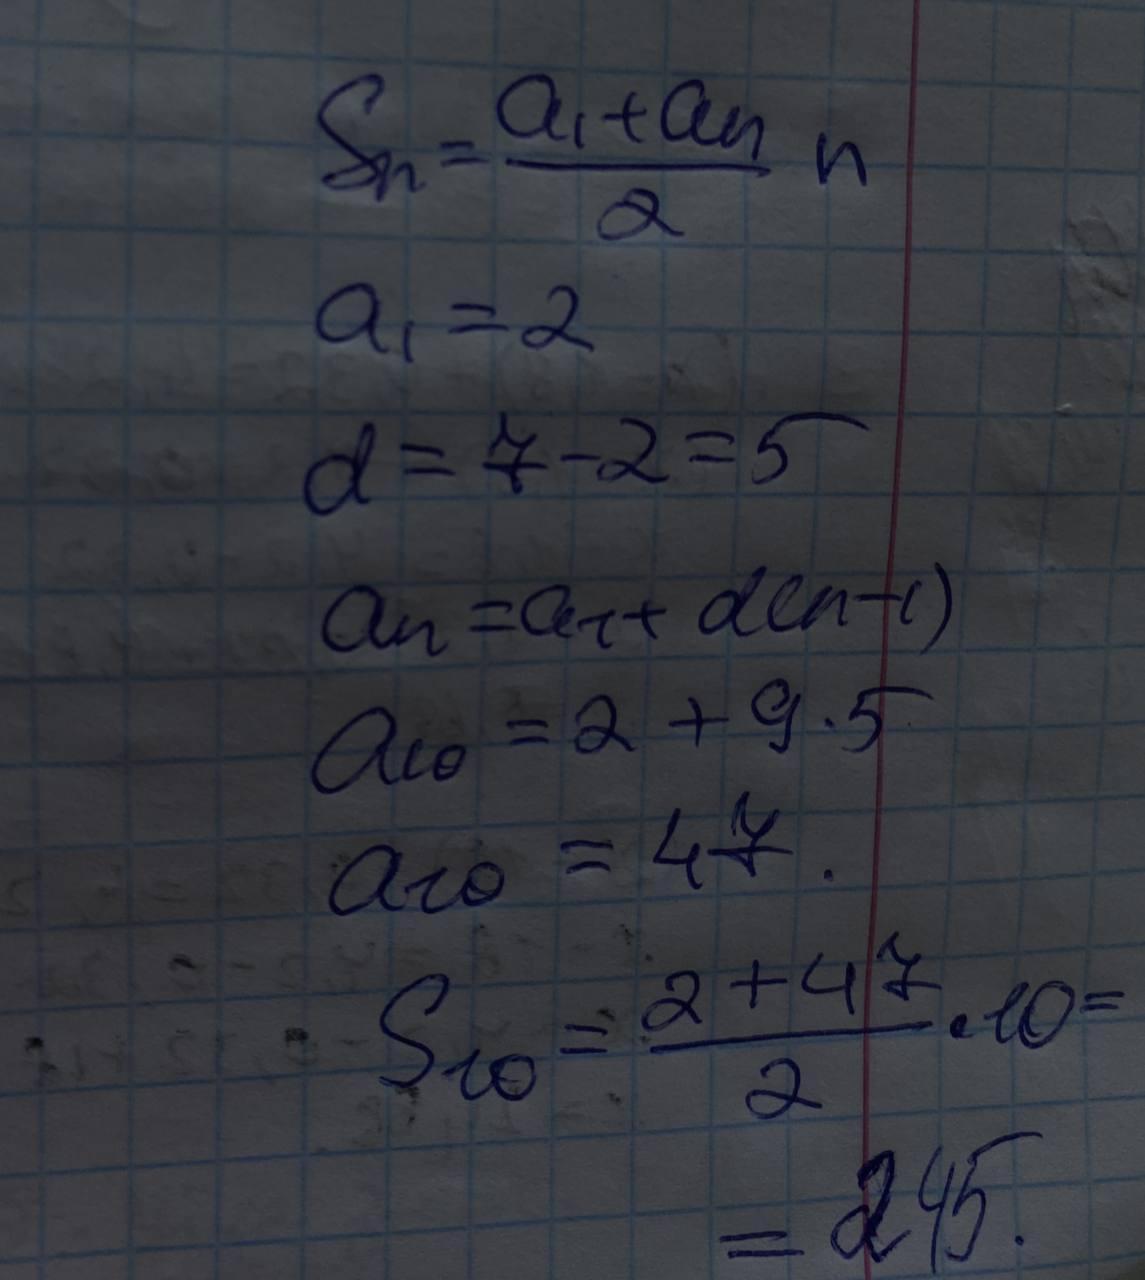 Sn = (a₁ + an)/2 n
a₁ = 2
d = 7 - 2 = 5
an = a₁ + d(n-1)
a₁₀ = 2 + 9 · 5
a₁₀ = 47.
S₁₀ = (2 + 47)/2 · 10 =
= 245.